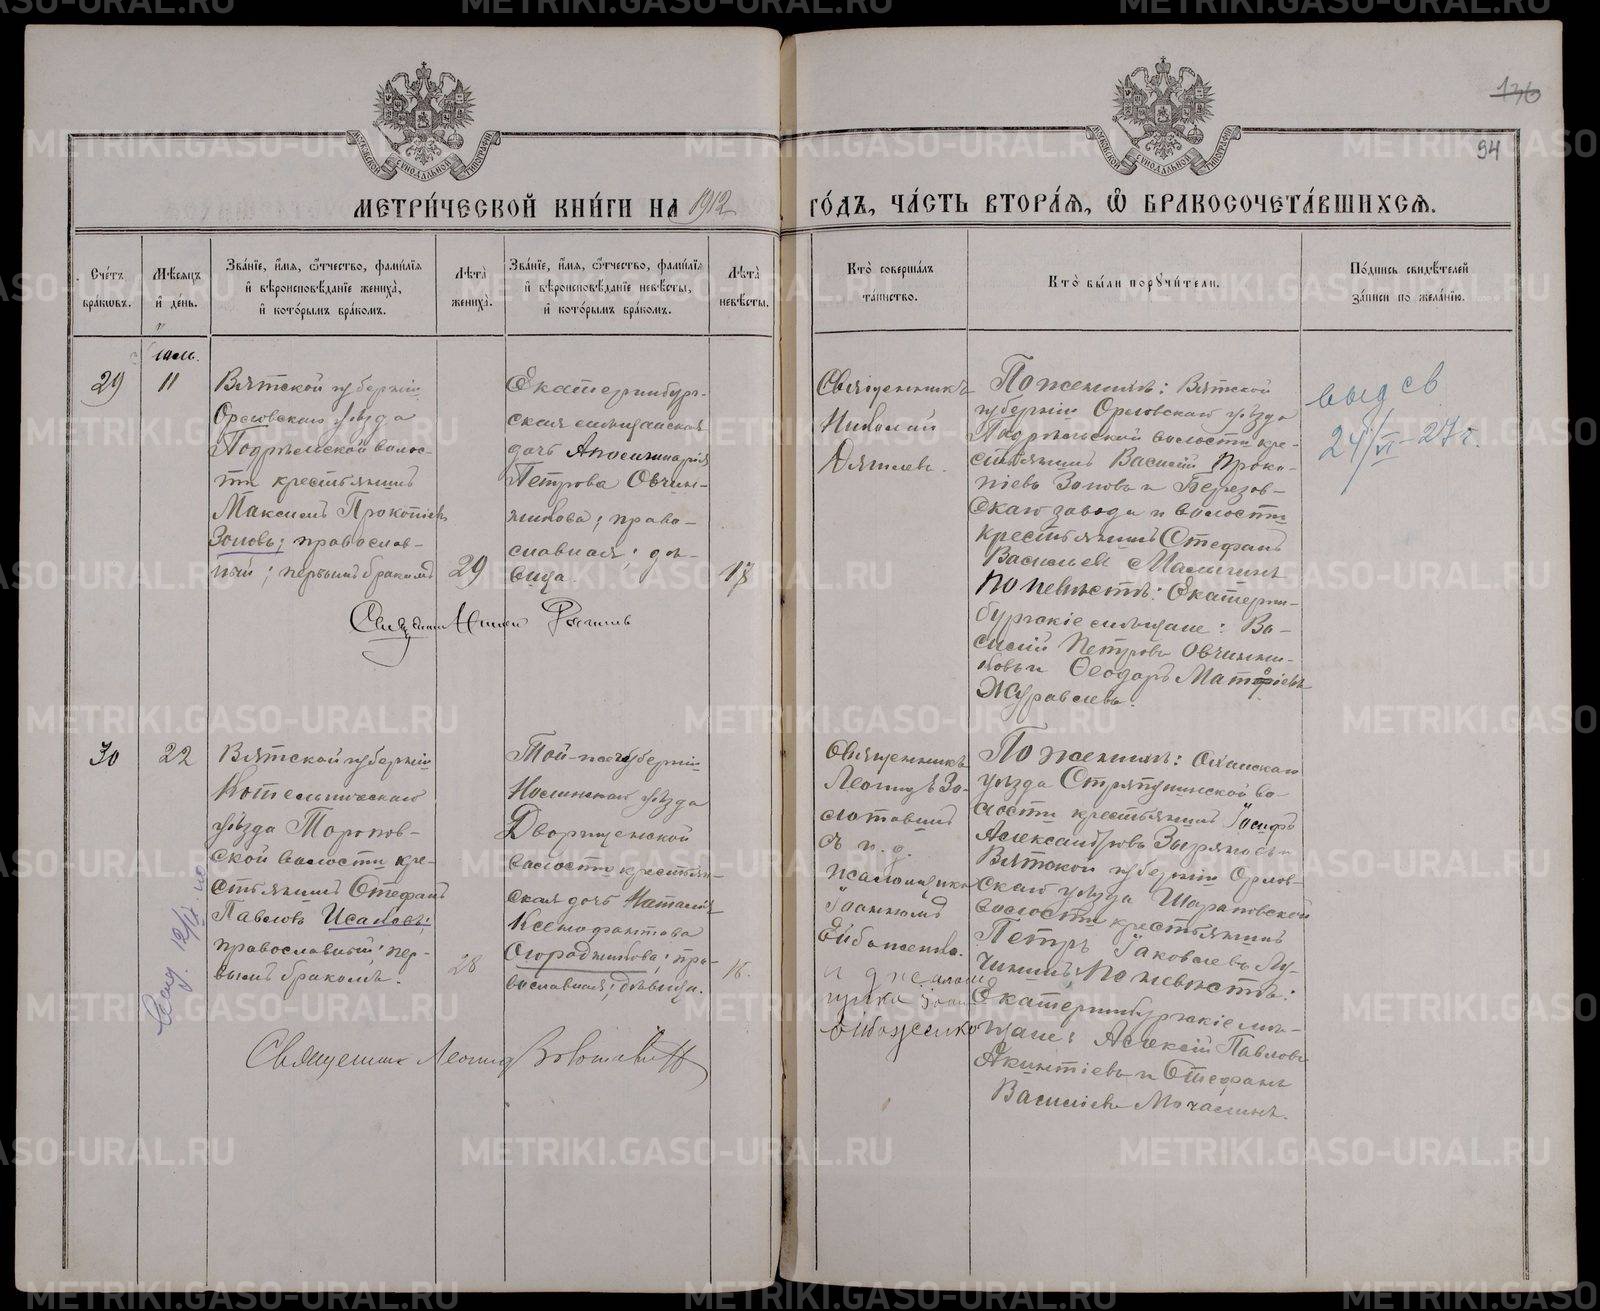 136
94
МЕТРИ́ЧЕСКОЙ КНИ́ГИ НА 1912 ГО́ДЪ, ЧА́СТЬ ВТОРА́Я, Ѡ БРАКОСОЧЕТА́ВШИХСЯ.
Сче́тъ
браковъ.
Мѣсяцъ
и́ де́нь.
Зва́нїе, и́мя, ѻ́тчество, фами́лїя
и́ вѣроисповѣ́данїе жениха̀,
и́ кото́рымъ бра́комъ.
Лѣта̀
жениха̀.
Зва́нїе, и́мя, ѻ́тчество, фами́лїя
и́ вѣроисповѣ́данїе невѣ́сты,
и́ кото́рымъ бра́комъ.
Лѣта̀
невѣ́сты.
Кто̀ соверша́лъ
та́инство.
Кто̀ бы́ли порꙋчи́тели.
По́дпись свидѣ́телей
за́писи по жела́нїю.
29
11
Вятской губерніи
Орловскаго уѣзда
волос-
ти крестьянинъ
Максимъ Прокопіевъ
Зоновъ; православ-
ный; первымъ бракомъ
29
Екатеринбург-
ская мѣщанская
дочь Аполлинарія
Петрова Овчин-
никова; право-
славная; дѣ-
вица.
Священникъ
Николай
По женихѣ: Вятской
губерніи Орловскаго уѣзда
волости кре-
стьянинъ Василій Проко-
піевъ Зоновъ и Березов-
скаго завода и волости
крестьянинъ Стефанъ
Васильевъ
По невѣстѣ: Екатерин-
бургскіе мѣщане: Ва-
силій Петровъ Овчинни-
ковъ и Ѳеодоръ
Журавлевъ.
24/VI-27 г.
30
22
Вятской губерніи
Котельническаго
уѣзда Торопов-
ской волости кре-
стьянинъ Стефанъ
Павловъ Исаковъ;
православный; пер-
вымъ бракомъ.
28
Той-же губерніи
Нолинскаго уѣзда
Дворищенской
волости крестьян-
ская дочь Наталія
Ксенофонтова
Огородникова; пра-
вославная; дѣвица.
Священникъ
Леонидъ Зо-
лотавинъ
съ и. д.
псаломщика
По женихѣ: Оханскаго
уѣзда Стряпунинской во-
лости крестьянинъ Іосифъ
Александровъ и
Вятской губерніи Орлов-
скаго уѣзда
волости крестьянинъ
Петръ Іаковлевъ Лу-
чининъ; По невѣстѣ:
Екатеринбургскіе мѣ-
щане: Алексій Павловъ
Акинтіевъ и Стефанъ
Василіевъ
Священник Леонид Золотавин